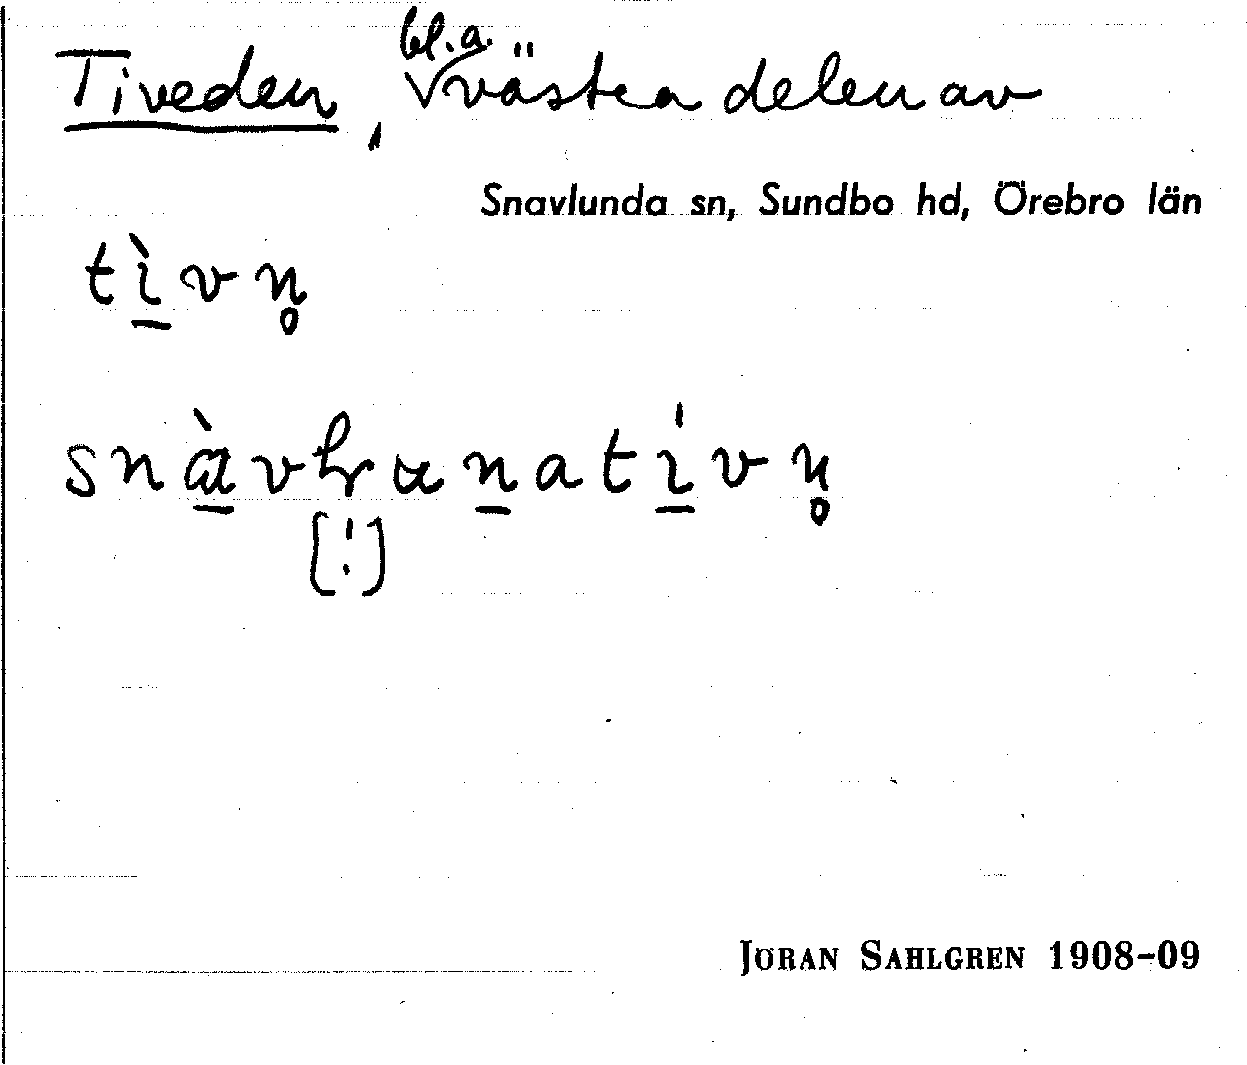 Tiveden, bl.a. västra delen av
Snavlunda sn, Sundbo hd, Örebro län
tì̠vn̥
snà̠vłrun̠atí̠vn̥
[!]
JÖRAN SAHLGREN 1908-09